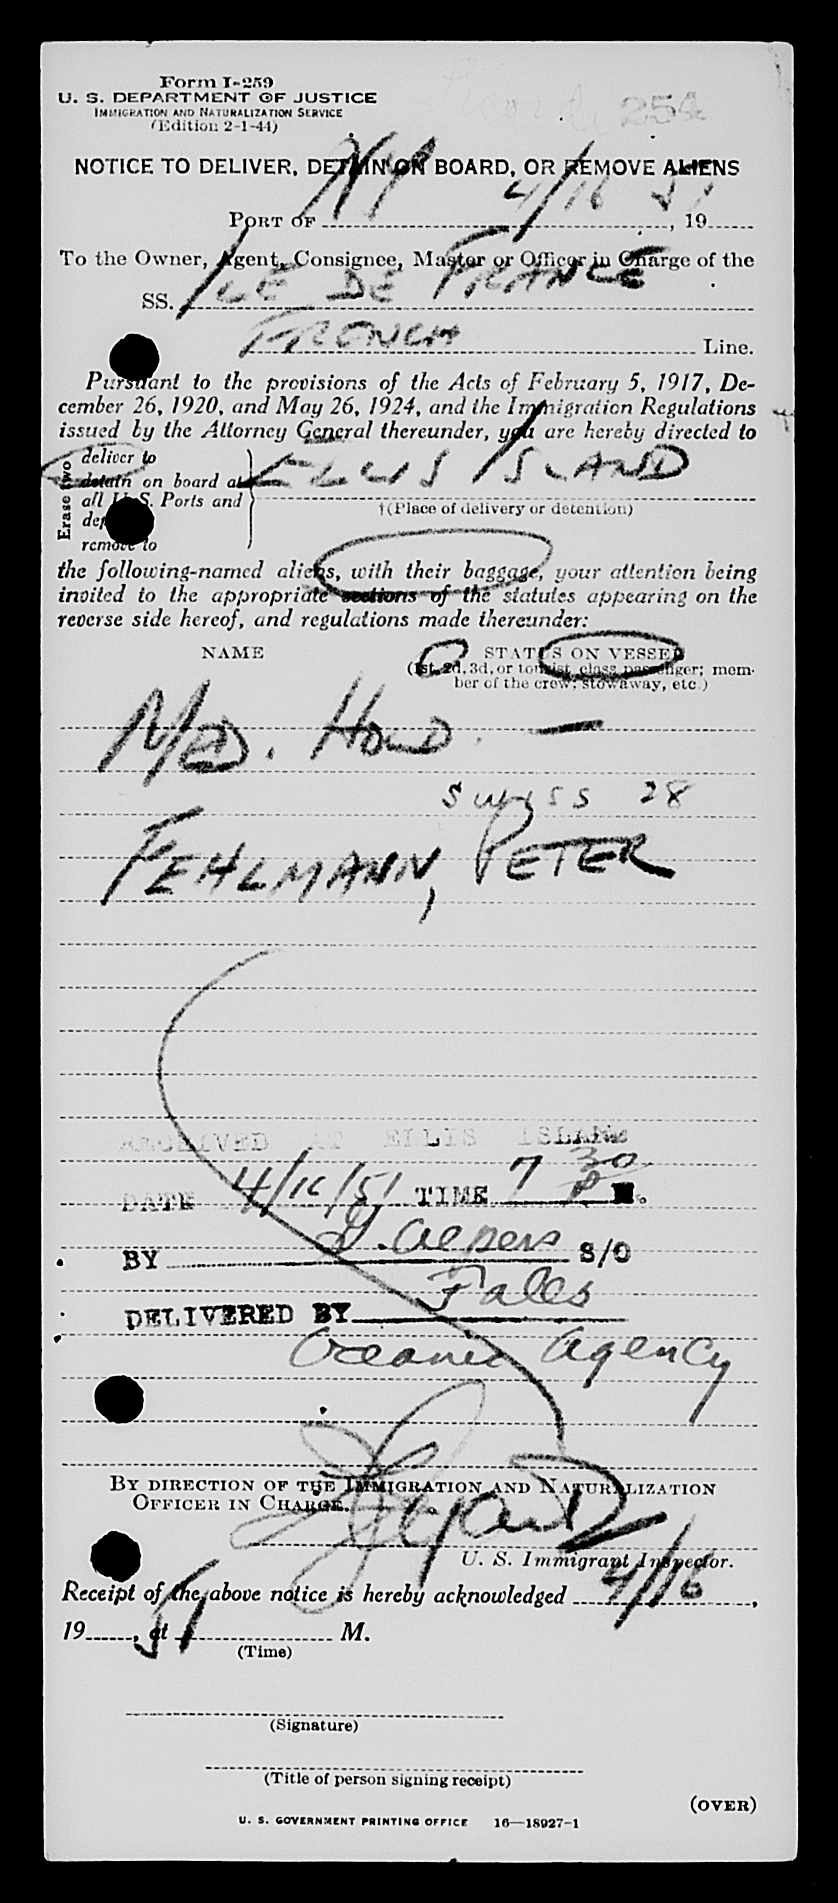 Form I-259
U. S. DEPARTMENT OF JUSTICE
IMMIGRATION AND NATURALIZATION SERVICE
(Edition 2-1-44)
254
NOTICE TO DELIVER, DETAIN ON BOARD, OR REMOVE ALIENS
PORT OF NY 4/16, 1951
To the Owner, Agent, Consignee, Master or Officer in Charge of the
SS. ILE DE FRANCE
FRENCH Line.
Pursuant to the provisions of the Acts of February 5, 1917, De-
cember 26, 1920, and May 26, 1924, and the Immigration Regulations
issued by the Attorney General thereunder, you are hereby directed to
Erase two
deliver to
detain on board at
all U. S. Ports and
remove to
ELLIS ISLAND
†(Place of delivery or detention)
the following-named aliens, with their baggage, your attention being
invited to the appropriate sections of the statutes appearing on the
reverse side hereof, and regulations made thereunder:
NAME STATUS ON VESSEL
(1st, 2d, 3d, or tourist class passenger; mem-
ber of the crew; stowaway, etc.)
MED. HOLD. —
SWISS 28
FEHLMANN, PETER
RECEIVED AT ELLIS ISLAND
DATE 4/16/51 TIME 7 30 P M.
BY S/O
DELIVERED BY Fales
Oceanic Agency
BY DIRECTION OF THE IMMIGRATION AND NATURALIZATION
OFFICER IN CHARGE.
U. S. Immigrant Inspector.
Receipt of the above notice is hereby acknowledged 4/16,
1951, at M.
(Time)
(Signature)
(Title of person signing receipt)
(OVER)
U. S. GOVERNMENT PRINTING OFFICE 16—18927-1